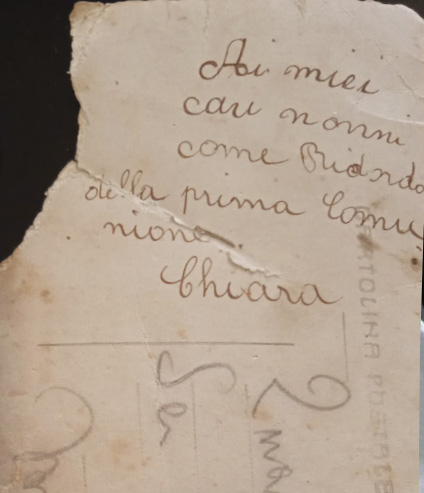 Ai miei
cari nonni
come Ricordo
della prima Comu-
nione
Chiara
CARTOLINA POSTALE